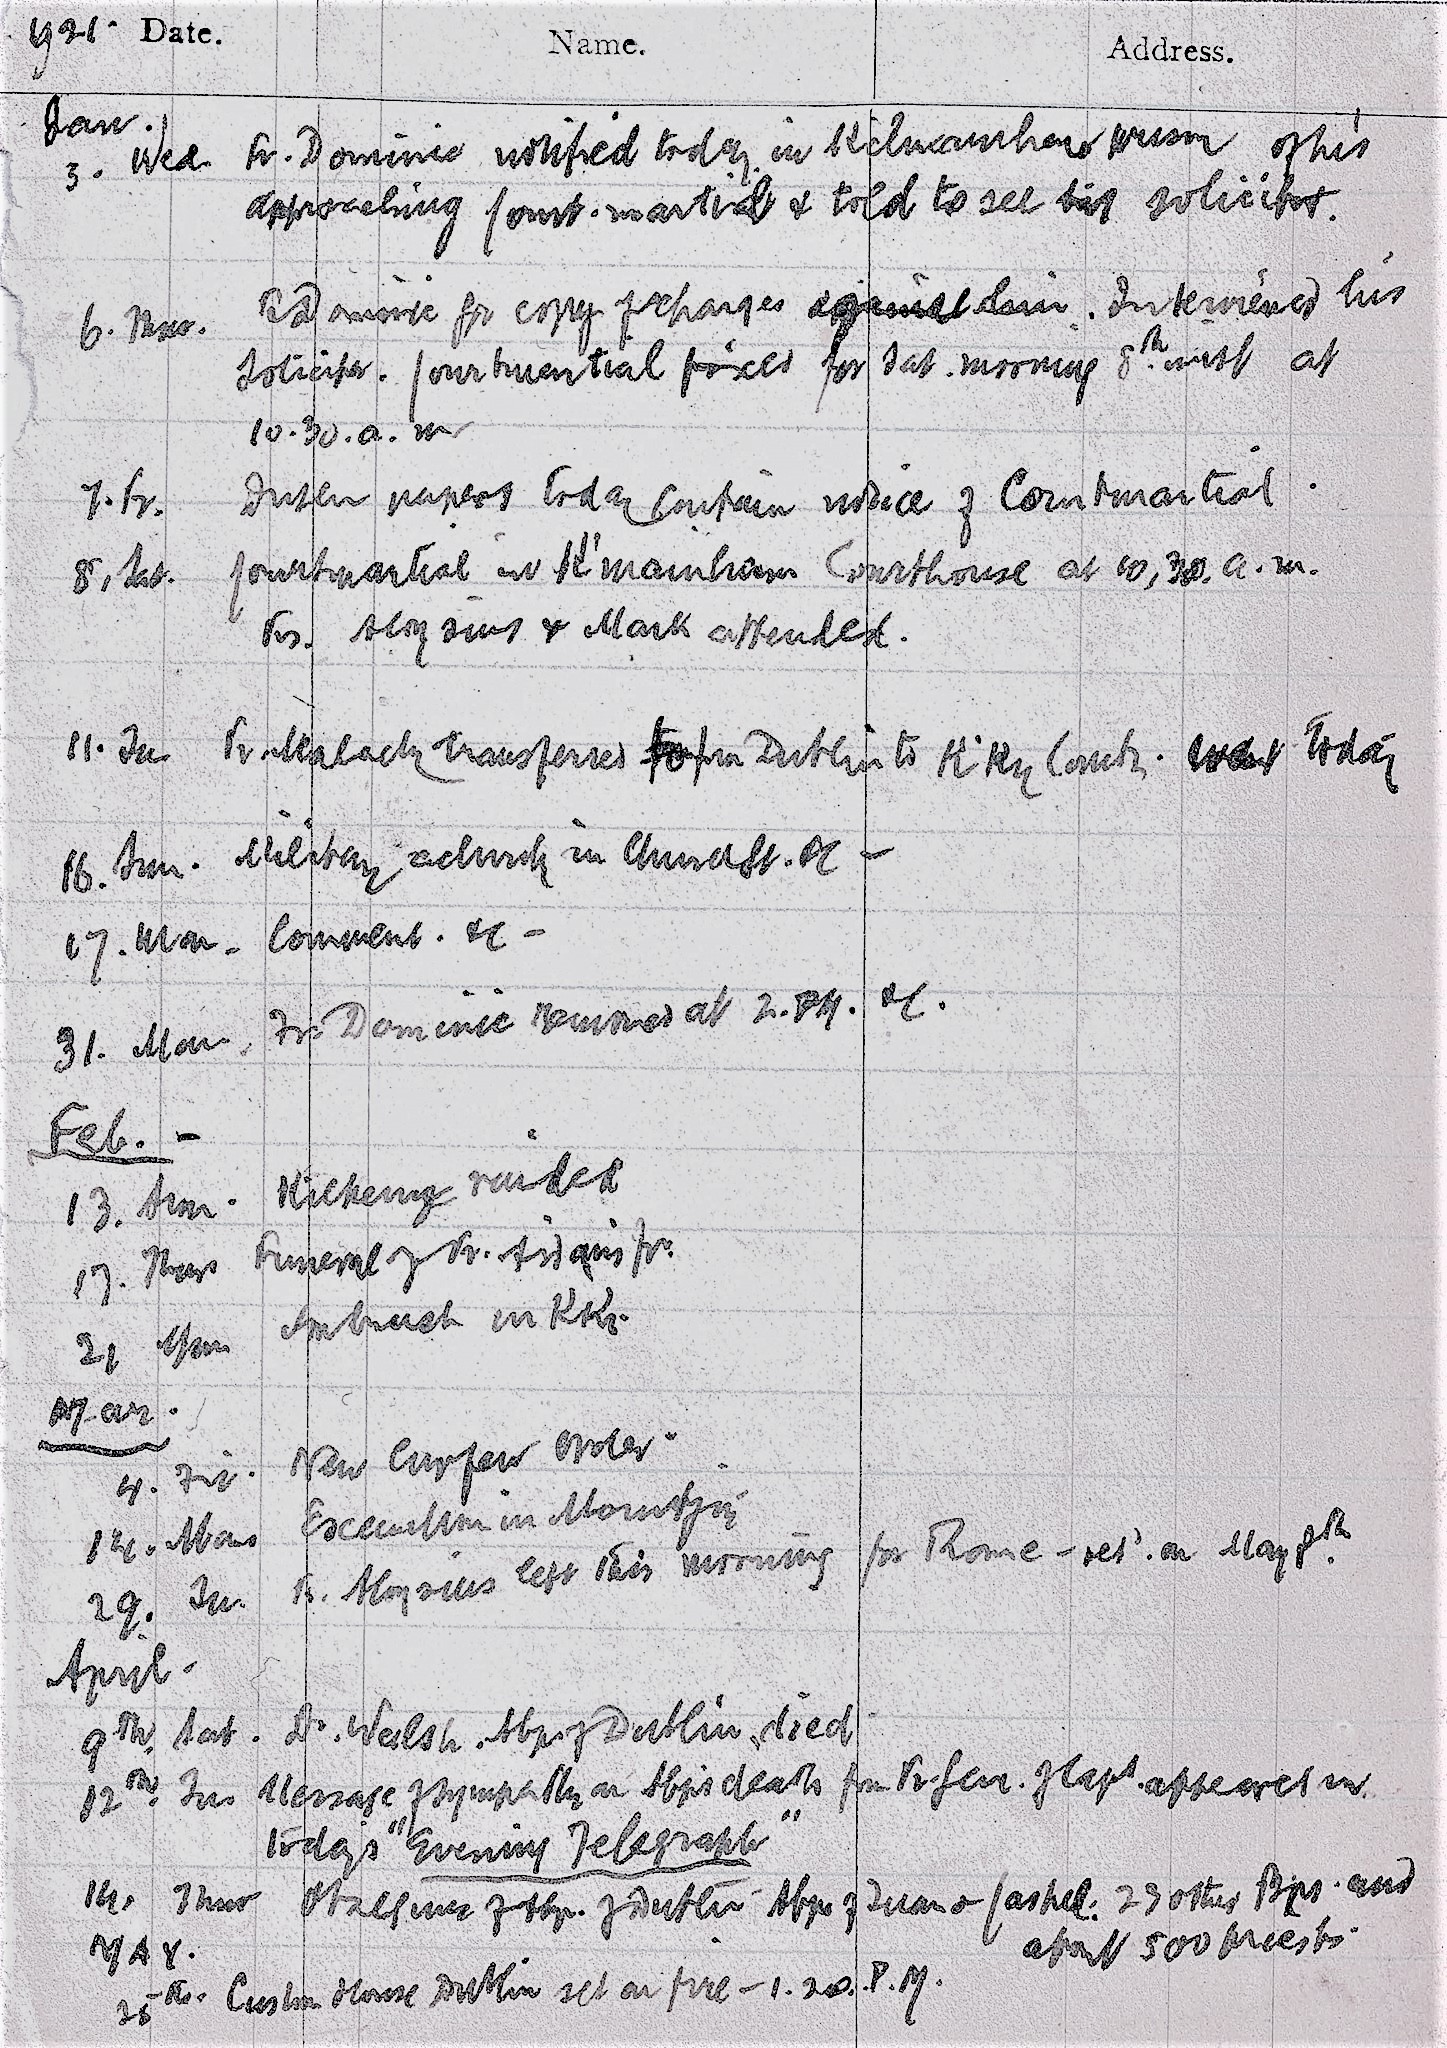 1921. Date. Name. Address.
Jan.
3. Wed. Fr. Dominic notified today in Kilmainham Prison of his
approaching Court-martial & told to see his solicitor.
6. Thur. Fr Dominic for copy of charges against him. Interviewed his
Solicitor. Courtmartial fixed for Sat. morning 8th inst at
10.30.a.m
7. Fr. papers today contain notice of Courtmartial.
8, Sat. Courtmartial in K'mainham Courthouse at 10,30.a.m.
Frs. Aloysius & Mark attended.
11. Tu Fr. Malachy transferred from Dublin to K'Kny today
16. Sun. Military in Church St. &c –
17. Mon. Comment. &c –
31. Mon, Fr. Dominic removed at 2.PM. &c.
Feb. –
13. Sun. Kilkenny raided
17. Thurs Funeral of Fr. Aidan's fr.
21 Mon Ambush in KKy.
Mar.
4. Fri. New Curfew Order.
14. Mon Execution in Mountjoy
29. Tu. Fr. Aloysius left this morning for Rome – ret'. on May 8th.
April.
9th. Sat. Dr. Walsh. Abp. of Dublin, died
12th. Tu. Message of sympathy on Abp's death from Fr. Gen. of Capt. appeared in
today's "Evening Telegraph"
14. Thur Obsequies of Abp. of Dublin Abps of Tuam & Cashel: 23 other Bps. and
about 500 priests.
MAY.
25th. Custom House Dublin set on fire – 1.20.P.M.